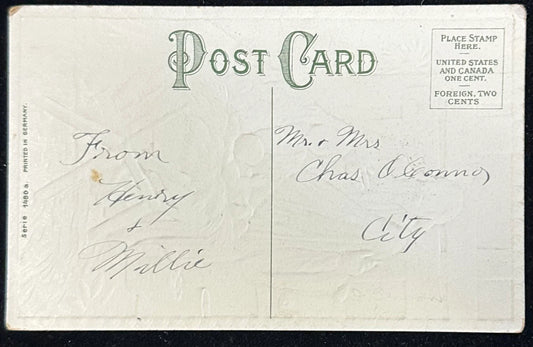 POST CARD
PLACE STAMP
HERE.
UNITED STATES
AND CANADA
ONE CENT.
FOREIGN, TWO
CENTS
From
Henry
&
Millie
Mr. & Mrs
Chas O'Connor
City
Serie 1080 a. PRINTED IN GERMANY.